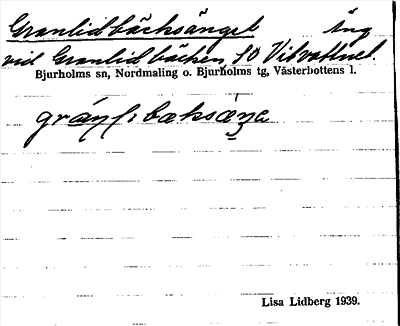 Granlidbäcksänget äng
vid Granlidbäcken, SO Vitvattnet.
Bjurholms sn, Nordmaling o. Bjurholms tg, Västerbottens l.
Lisa Lidberg 1939.